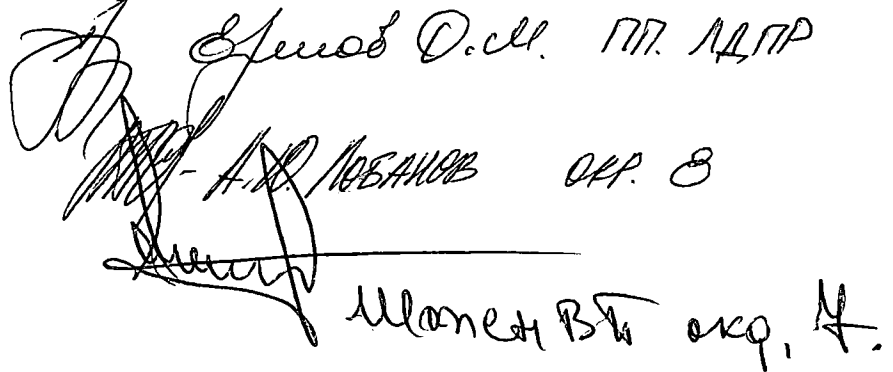 Ершов О.М. ПП. ЛДПР
А.Ю. ЛОБАНОВ ОКР. 8
Шопен В П окр. 7.